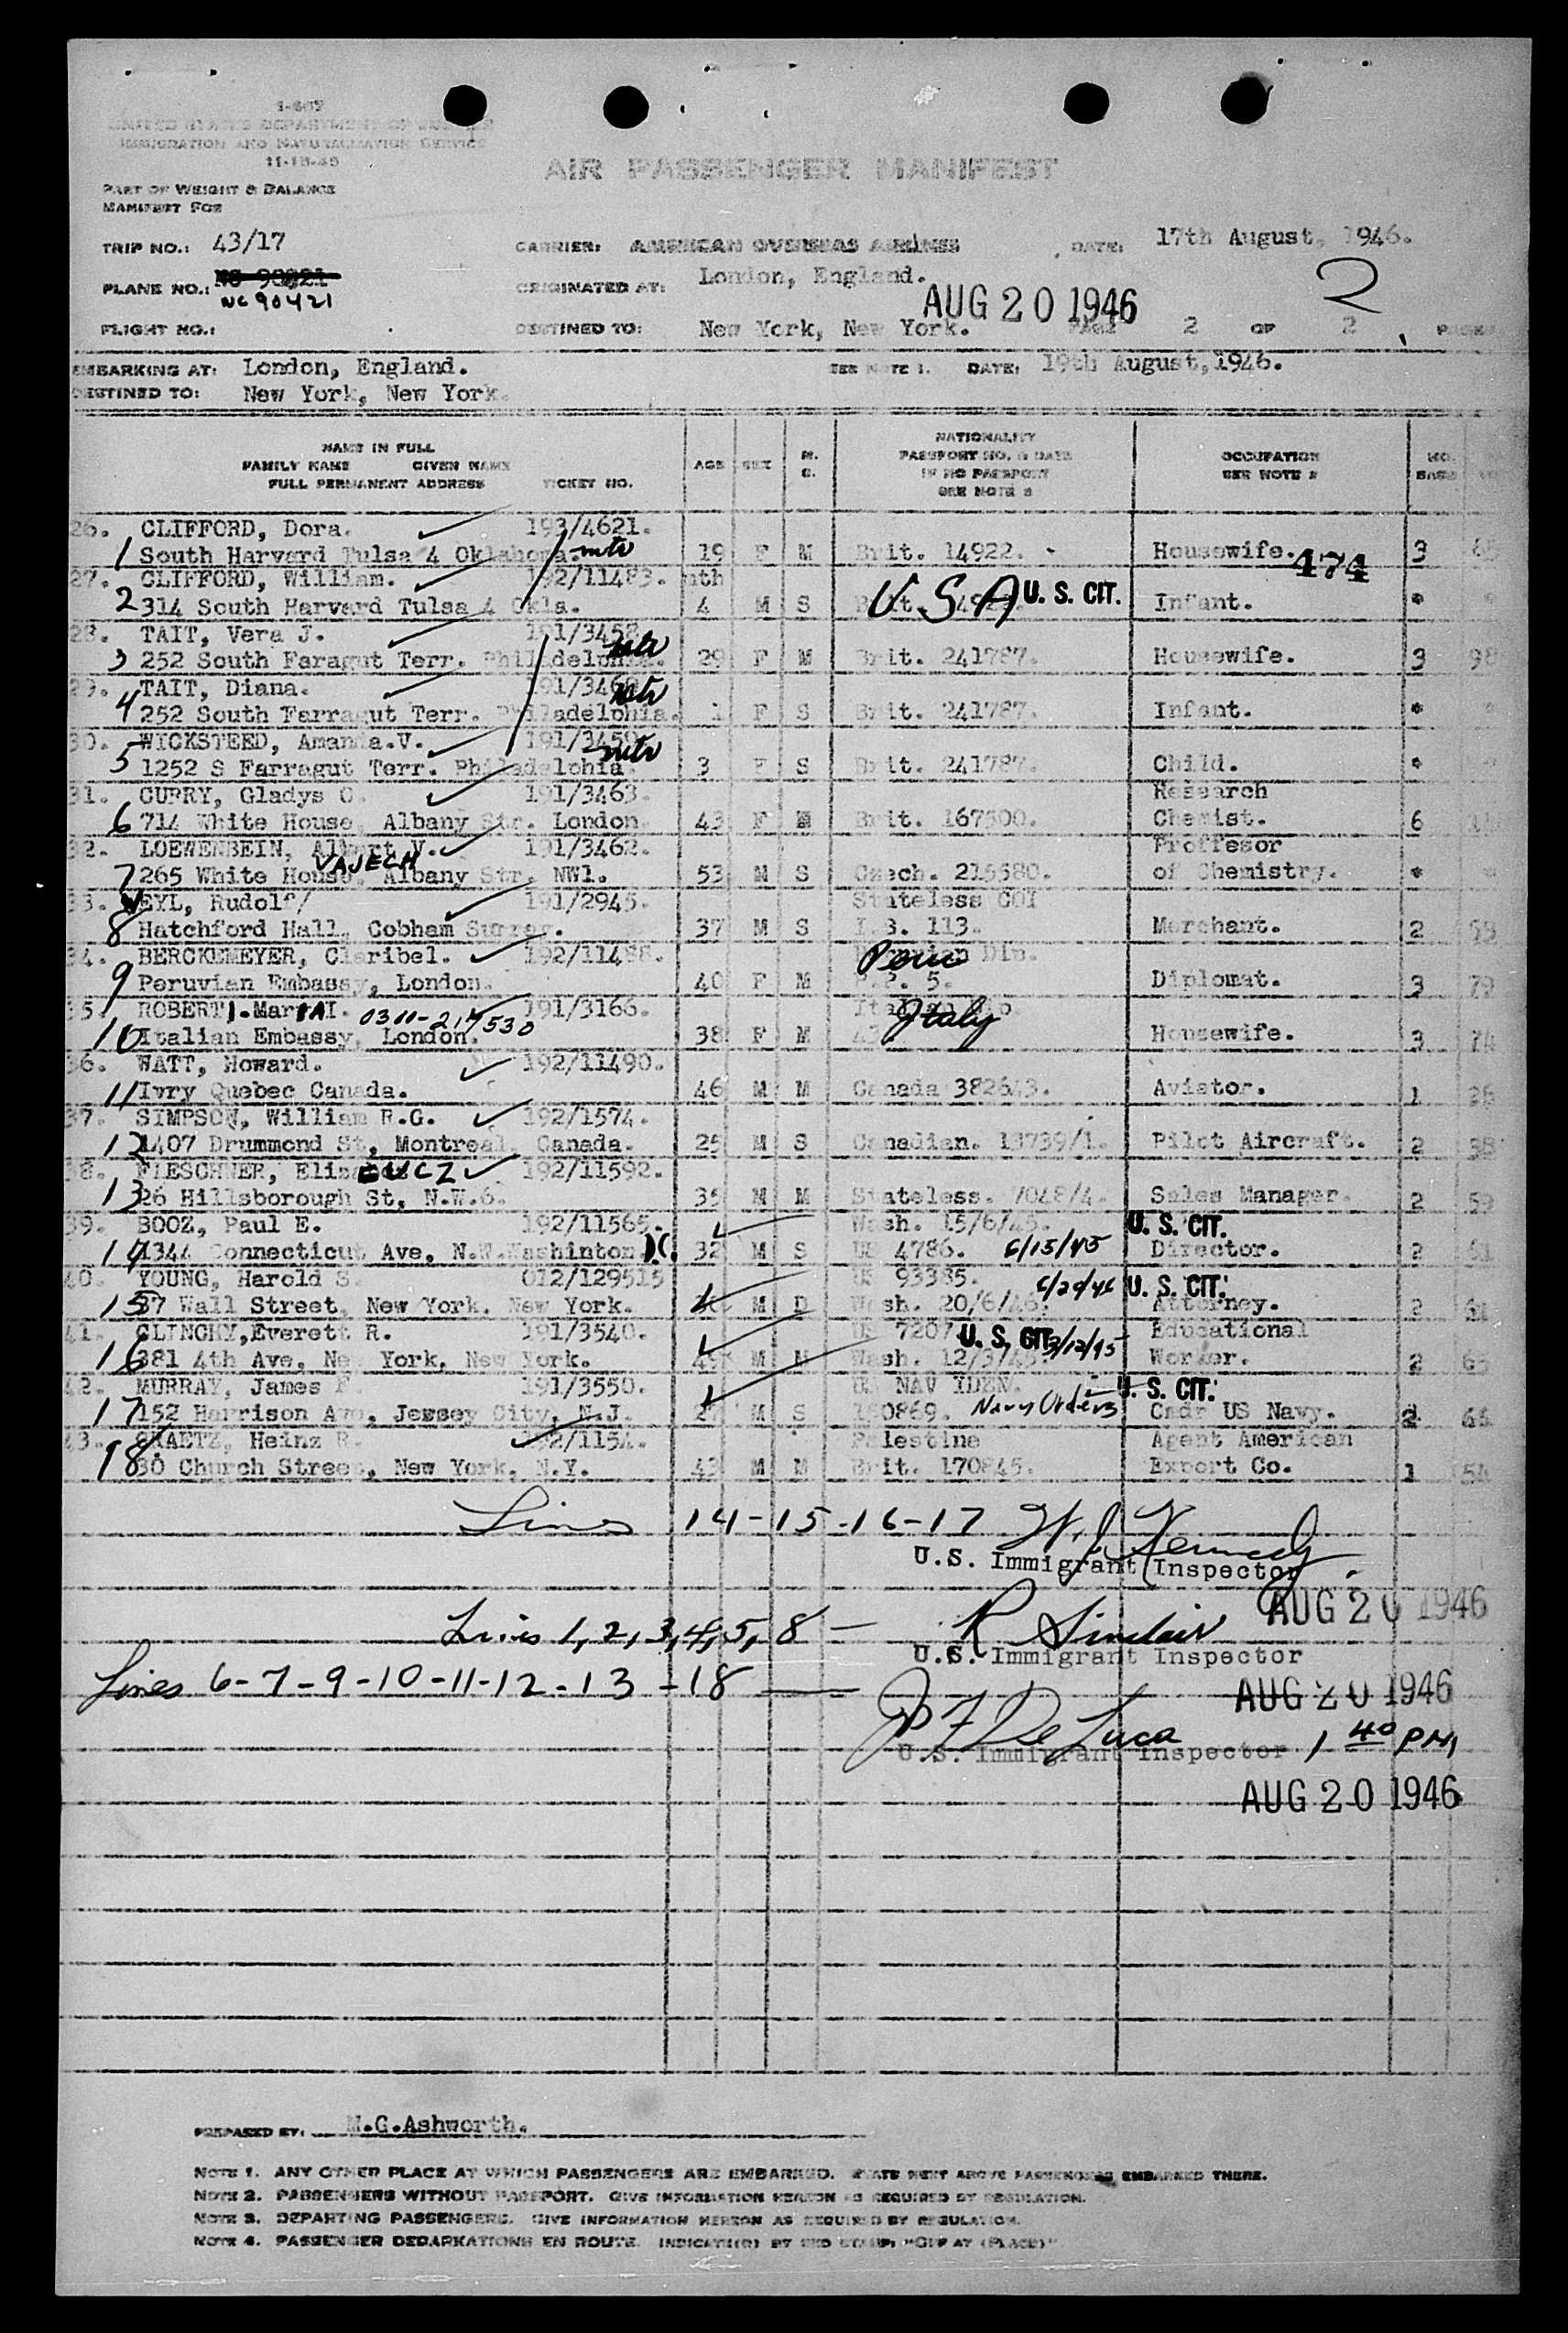 I-607
UNITED STATES DEPARTMENT OF JUSTICE
IMMIGRATION AND NATURALIZATION SERVICE
11-18-45
AIR PASSENGER MANIFEST
PART OF WEIGHT & BALANCE
MANIFEST FOR
TRIP NO.: 43/17 CARRIER: AMERICAN OVERSEAS AIRLINES DATE: 17th August, 1946.
PLANE NO.: NC90421 ORIGINATED AT: London, England. 2
AUG 20 1946
FLIGHT NO.: DESTINED TO: New York, New York. PAGE 2 OF 2 PAGES
EMBARKING AT: London, England. SEE NOTE 1. DATE: 19th August, 1946.
DESTINED TO: New York, New York.
NAME IN FULL
FAMILY NAME GIVEN NAME
FULL PERMANENT ADDRESS TICKET NO. AGE SEX M. S. NATIONALITY PASSPORT NO. & DATE IF NO PASSPORT SEE NOTE 2 OCCUPATION SEE NOTE 3 NO. BAGS
26. CLIFFORD, Dora. 193/4621.
1 South Harvard Tulsa 4 Oklahoma. mtv 19 F M Brit. 14922. Housewife. 474 3
27. CLIFFORD, William. 192/11483. mth
2 314 South Harvard Tulsa 4 Okla. 4 M S U.S.A U. S. CIT. Infant. "
28. TAIT, Vera J.
3 252 South Faragut Terr. Philadelphia. mtv 29 F M Brit. 241787. Housewife. 3 98
29. TAIT, Diana.
4 252 South Farragut Terr. Philadelphia. mtv 1 F S Brit. 241787. Infant. "
30. WICKSTEED, Amanda.V. 191/3459.
5 1252 S Farragut Terr. Philadelphia. mtv 3 F S Brit. 241787. Child. "
31. CURRY, Gladys O. 191/3463. Research
6 714 White House, Albany Str. London. 43 F M Brit. 167500. Chemist. 6
32. LOEWENBEIN, Albert V. 191/3462. Proffesor
VAJECH
7 265 White House, Albany Str. NW1. 53 M S Czech. 215580. of Chemistry. "
33. WEYL, Rudolf 191/2945. Stateless COI
8 Hatchford Hall, Cobham Surrey. 37 M S I.S. 113. Merchant. 2 59
34. BERCKEMEYER, Claribel. 192/11488. Peru Dip.
9 Peruvian Embassy, London. 40 F M P.P. 5. Diplomat. 3 79
35. ROBERTI. MariaI. 0311-217530 191/3166.
10 Italian Embassy, London. 38 F M Italy Housewife. 3 74
36. WATT, Howard. 192/11490.
11 Ivry Quebec Canada. 46 M M Canada 382643. Aviator. 1 26
37. SIMPSON, William R.G. 192/1574.
12 1407 Drummond St, Montreal, Canada. 25 M S Canadian. 13739/1. Pilot Aircraft. 2 38
38. FLESCHNER, 192/11592.
13 26 Hillsborough St, N.W.6. 35 M M Stateless. 7048/4. Sales Manager. 2 59
39. BOOZ, Paul E. 192/11565. Wash. 15/6/45. U. S. CIT.
14 1344 Connecticut Ave, N.W.Washinton. 32 M S US 4786. 6/15/45 Director. 2 61
40. YOUNG, Harold S. 012/129515 US 93385. 6/20/46 U. S. CIT.
15 37 Wall Street, New York. New York. M D Wash. 20/6/46. Attorney. 2 61
41. CLINCHY,Everett R. 191/3540. US 7207 U. S. CIT. 3/12/45 Educational
16 381 4th Ave, New York, New York. 49 M M Wash. 12/3/45. Worker. 2 65
42. MURRAY, James F. 191/3550. US NAV IDEN. U. S. CIT.
17 152 Harrison Ave, Jersey City, N.J. 27 M S 180869. Navy Orders Cmdr US Navy. 2 44
43. Heinz R. 192/1154. Palestine Agent American
18 30 Church Street, New York, N.Y. 43 M M Brit. 170845. Export Co. 1 54
Lines 14-15-16-17 W.J. Kennedy
U.S. Immigrant Inspector
AUG 20 1946
Lines 1,2,3,4,5, 8 — R Sinclair
U.S. Immigrant Inspector
Lines 6-7-9-10-11-12-13-18 —
AUG 20 1946
De Luca
U.S. Immigrant Inspector 1 40 PM
AUG 20 1946
PREPARED BY: M.G.Ashworth.
NOTE 1. ANY OTHER PLACE AT WHICH PASSENGERS ARE EMBARKED. STATE NEXT ABOVE PASSENGERS EMBARKED THERE.
NOTE 2. PASSENGERS WITHOUT PASSPORT. GIVE INFORMATION HEREON AS REQUIRED BY REGULATION.
NOTE 3. DEPARTING PASSENGERS. GIVE INFORMATION HEREON AS REQUIRED BY REGULATION.
NOTE 4. PASSENGER DEBARKATIONS EN ROUTE. INDICATE(D) BY RED STAMP: "OFF AT (PLACE)"